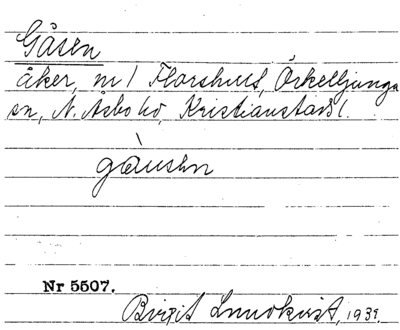 Gåsen
åker, nr 1 Florshult, Örkelljunga
sn, N. Åsbo hd, Kristianstads l.
gàusen
Nr 5507.
Birgit Lundkvist, 1931.